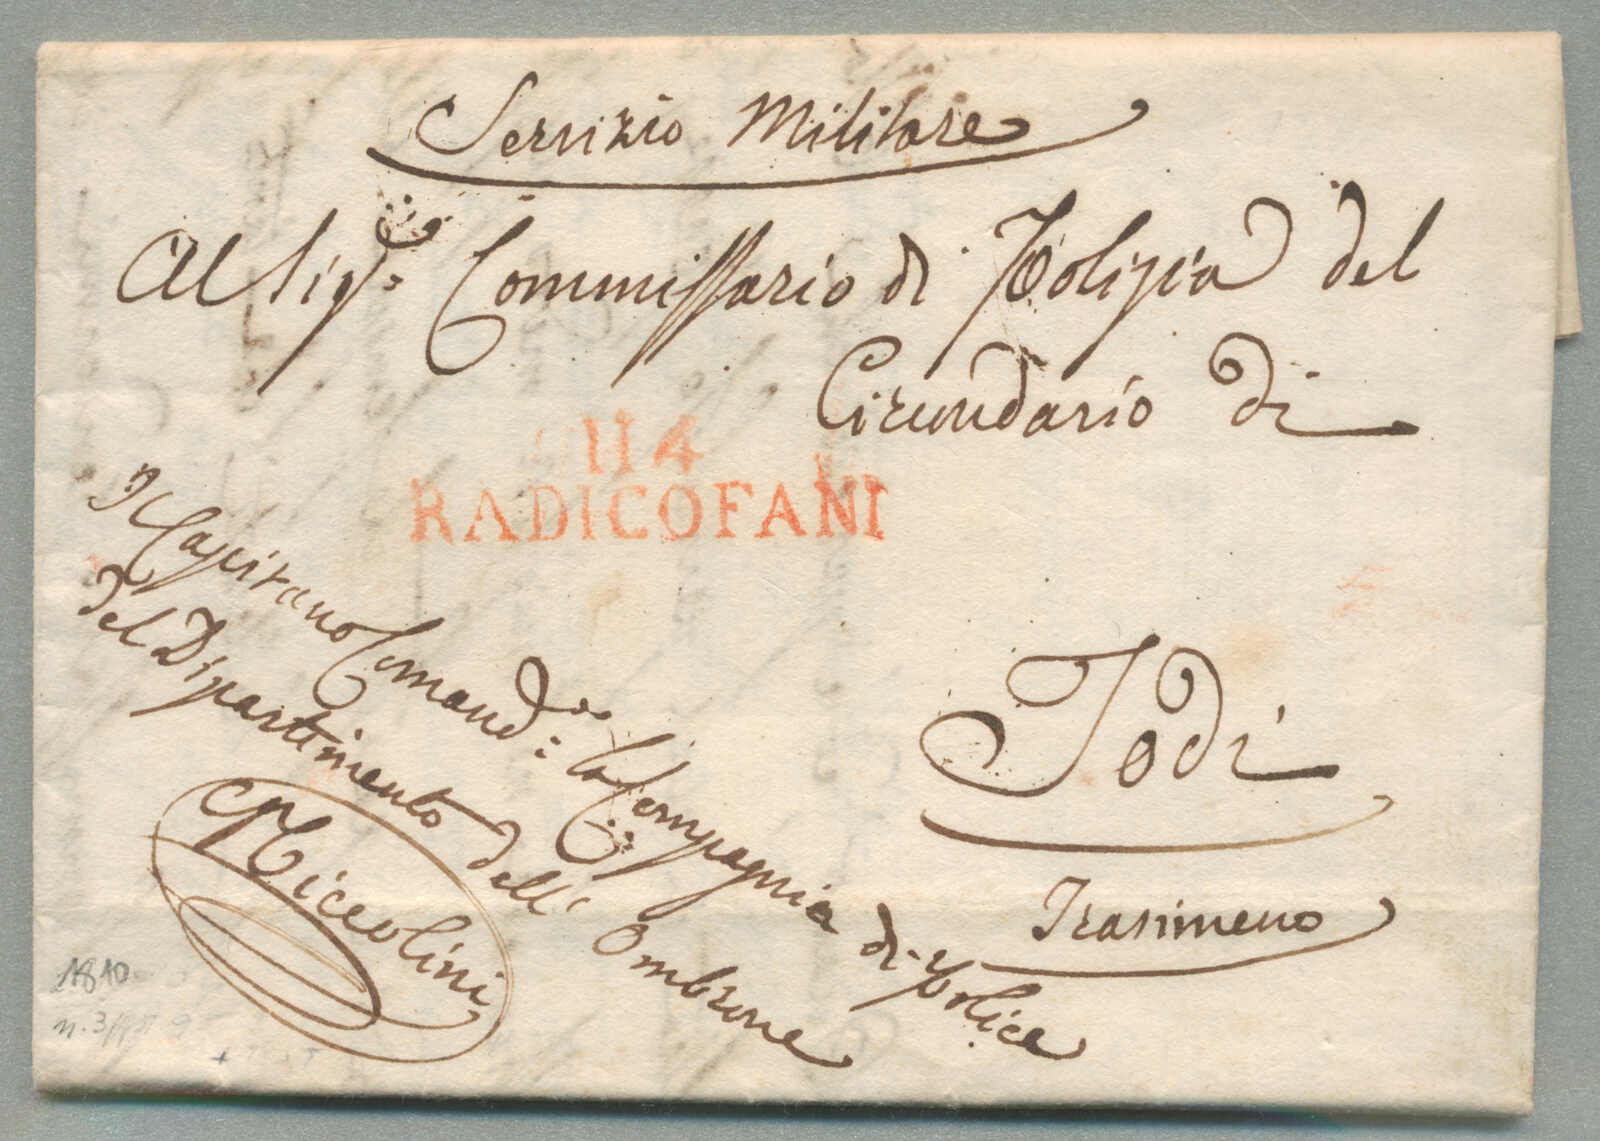 Servizio Militare
Al Sig.r Commissario di Polizia del
Circundario di
114
RADICOFANI
Il Capitano Comand.e la Compagnia di Police
del Dipartimento dell' Ombrone
Niccolini
Todi
Trasimeno
1810